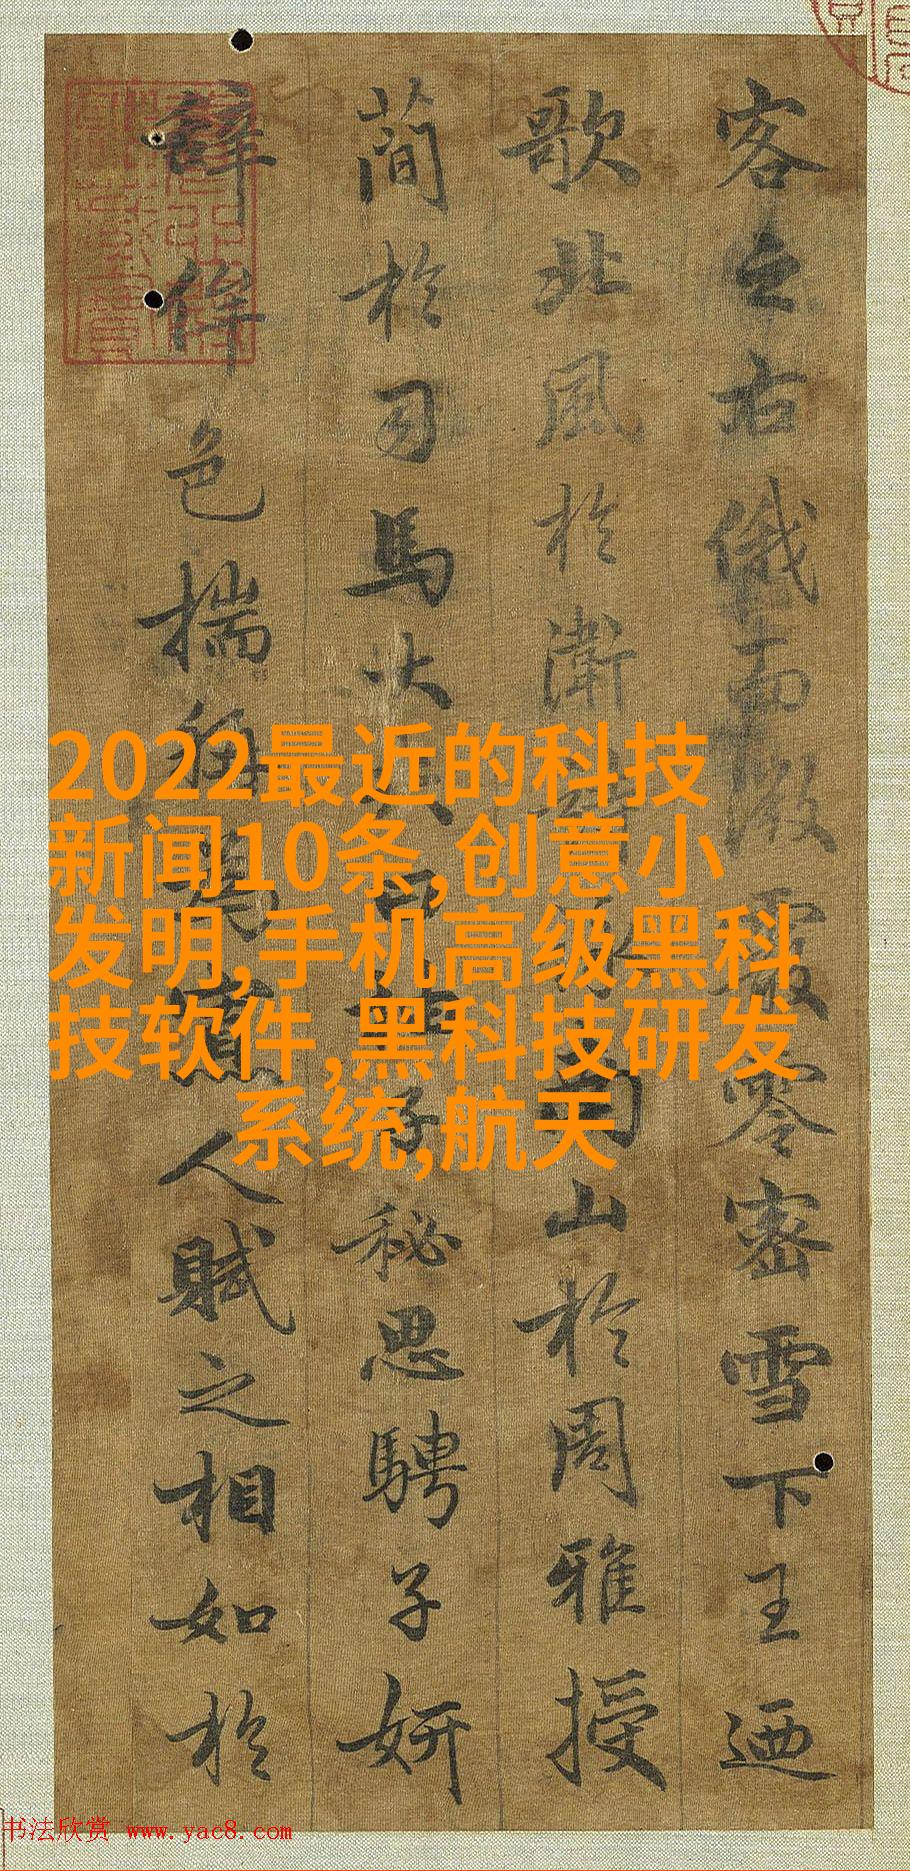 2022最近的科技
新闻10条,创意小
发明,手机高级黑科
技软件,黑科技研发
系统,航天
客之右俄而微霰零密雪下王迺
歌北風於衛南山於周雅授
簡於司馬大夫曰子秘思騁子妍
辭侔色揣稱為寡人賦之相如於
书法欣赏 www.yac8.com